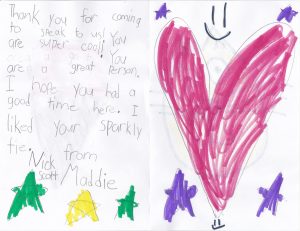 Thank you for coming
to speak to us! You
are super cool! You
are a great person.
I hope you had a
good time here. I
liked your sparkly
tie. from
Nick Maddie
Scott